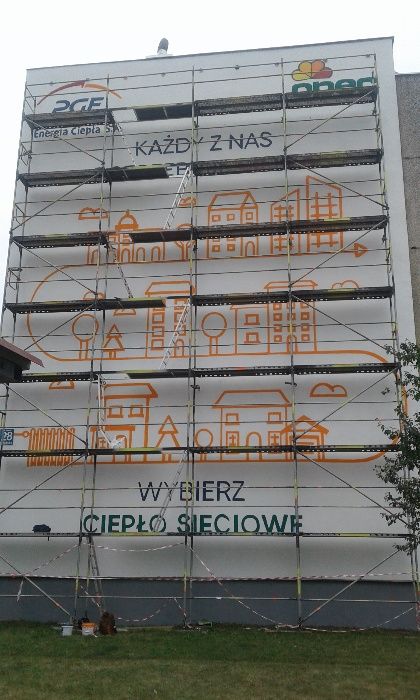 PGE
Energia Ciepła S.
opec
KAŻDY Z NAS
WYBIERZ
CIEPŁO SIECIOWE